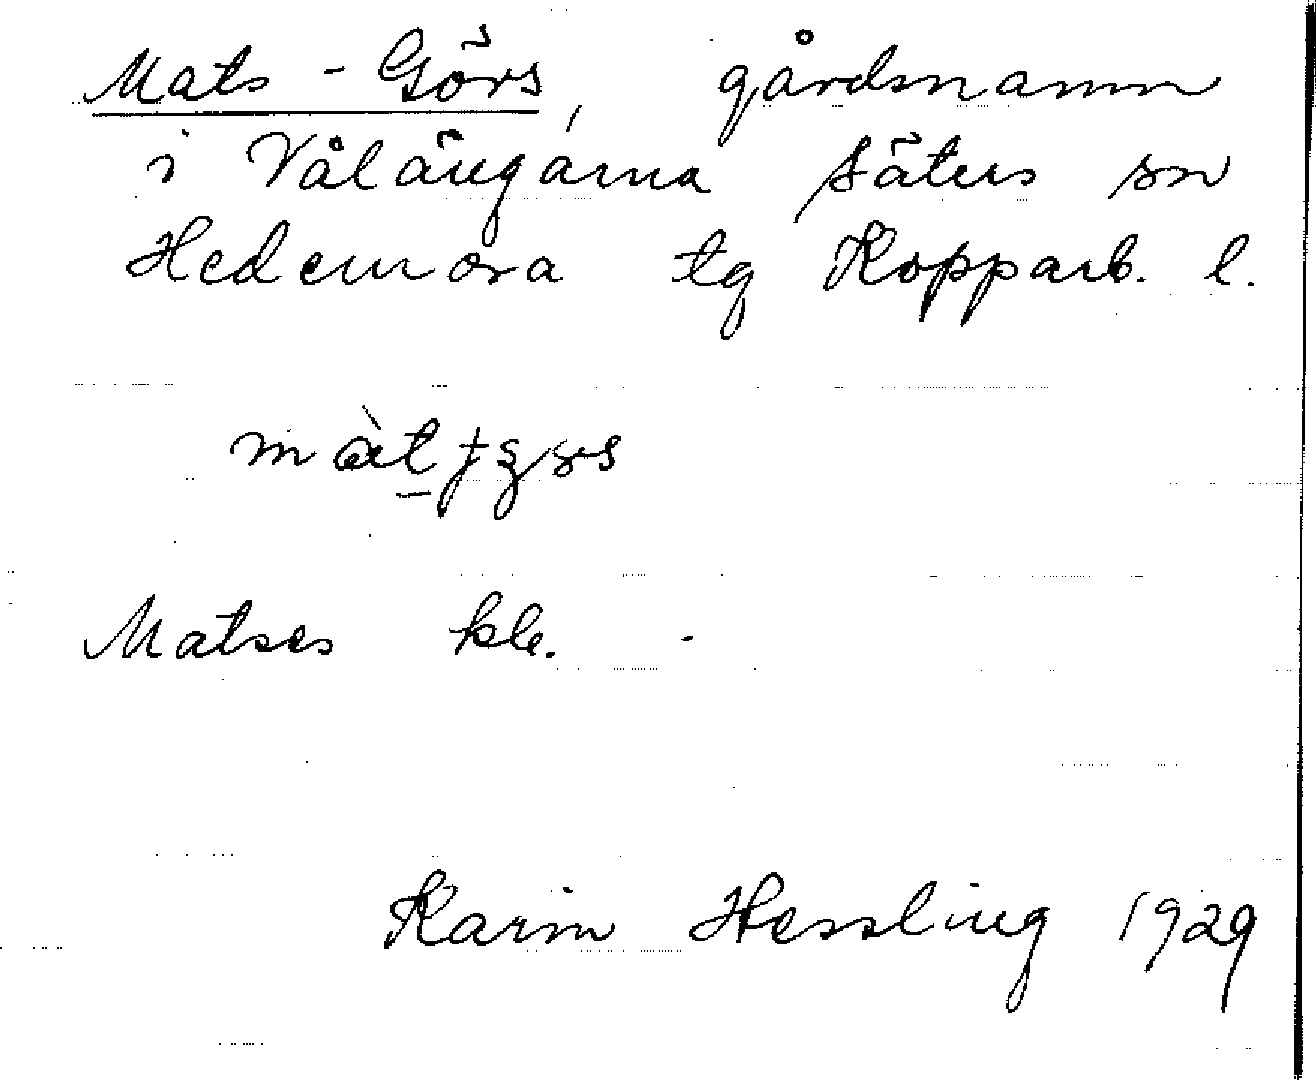 Mats-Görs, gårdsnamn
i Vålängarna Säters sn
Hedemora tg Kopparb. l.
Matses
Karin Hessling 1929